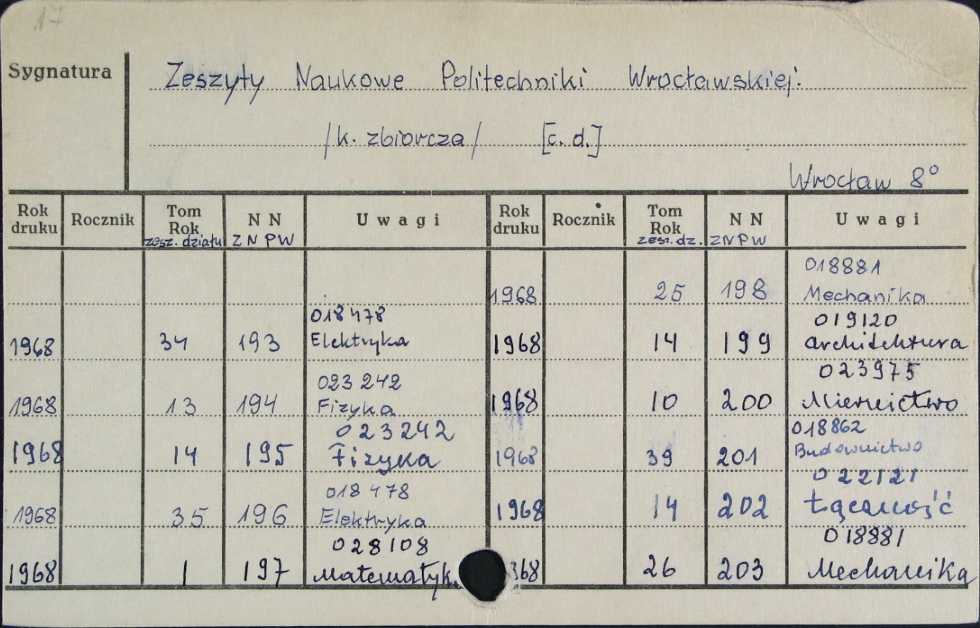 17
Sygnatura
Zeszyty Naukowe Politechniki Wrocławskiej.
/k. zbiorcza/ [c. d.]
Wrocław 8°
Rok druku Rocznik Tom Rok zesz. działu N N ZNPW Uwagi
018 478
1968 34 193 Elektryka
023 242
1968 13 194 Fizyka
023242
1968 14 195 Fizyka
018 478
1968 35 196 Elektryka
028108
1968 1 197 Matematyk
Rok druku Rocznik Tom Rok zesz. dz. N N ZNPW Uwagi
018881
1968 25 198 Mechanika
019120
1968 14 199 Architektura
023975
1968 10 200 Miernictwo
018862
1968 39 201 Budownictwo
022121
1968 14 202 Łączność
018881
968 26 203 Mechanika